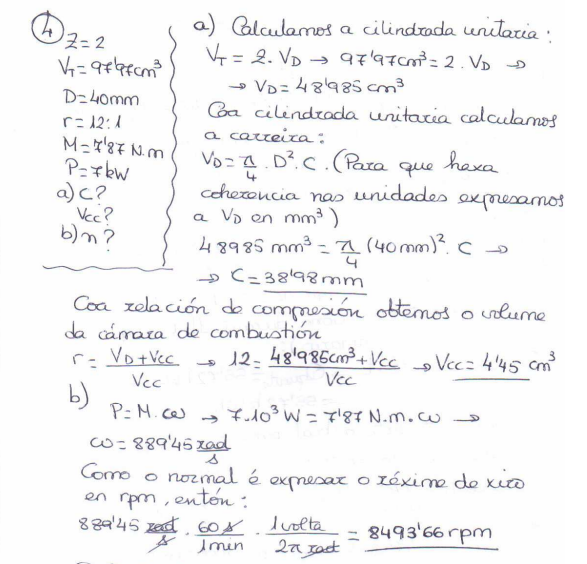 4
Z=2
V_T=97'97cm³
D=40mm
r=12:1
M=7'87 N.m
P=7kW
a) C?
Vcc?
b) n?
a) Calculamos a cilindrada unitaria:
V_T = 2. V_D → 97'97cm³ = 2. V_D →
→ V_D = 48'985 cm³
Coa cilindrada unitaria calculamos
a carreira:
V_D = π/4 . D². C. (Para que haxa
coherencia nas unidades expresamos
a V_D en mm³)
48985 mm³ = π/4 (40mm)². C →
→ C = 38'98mm
Coa relación de compresión obtemos o volume
da cámara de combustión
r = (V_D + Vcc)/Vcc → 12 = (48'985cm³ + Vcc)/Vcc → Vcc = 4'45 cm³
b)
P = M. ω → 7.10³ W = 7'87 N.m. ω →
ω = 889'45 rad/s
Como o normal é expresar o réxime de xiro
en rpm, entón:
889'45 rad/s . 60 s/1min . 1volta/2π rad = 8493'66 rpm